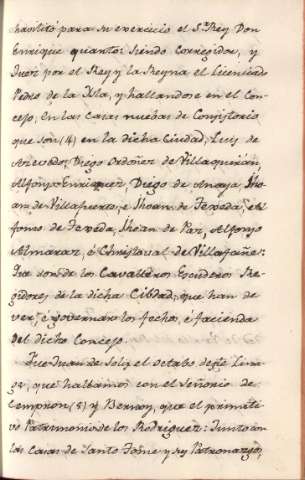 habilitó para su exercicio el S.r Rey Don
Enrique quarto: siendo Corregidor, y
Juez por el Rey y la Reyna el Licenciado
Pedro de la Isla, y hallandose en el Con-
cejo, en las casas nuebas de Consistorio
que son (4) en la dicha Ciudad; Luis de
Acevedo; Diego Ordoñez de Villaquirán,
Alfonso Enriquez, Diego de Anaya, Jho-
an de Villafuerte, é Jhoan de Texeda, é Al-
fonso de Texeda, Jhoan de Paz, Alfonso
Almaraz, é Christoval de Villafañe:
que son de los Cavalleros Escuderos Re-
gidores de la dicha Cibdad, que han de
ver, é governar los fechos, é facienda
del dicho Concejo.
Fue Juan de Solis el octabo de este Lina-
ge, que hallamos con el Señorio de
Cempron (5) y Bernoy, que el primiti-
vo Patrimonio de los Rodriguez: Junto con
las casas de Santo Tome y su Patronazgo,